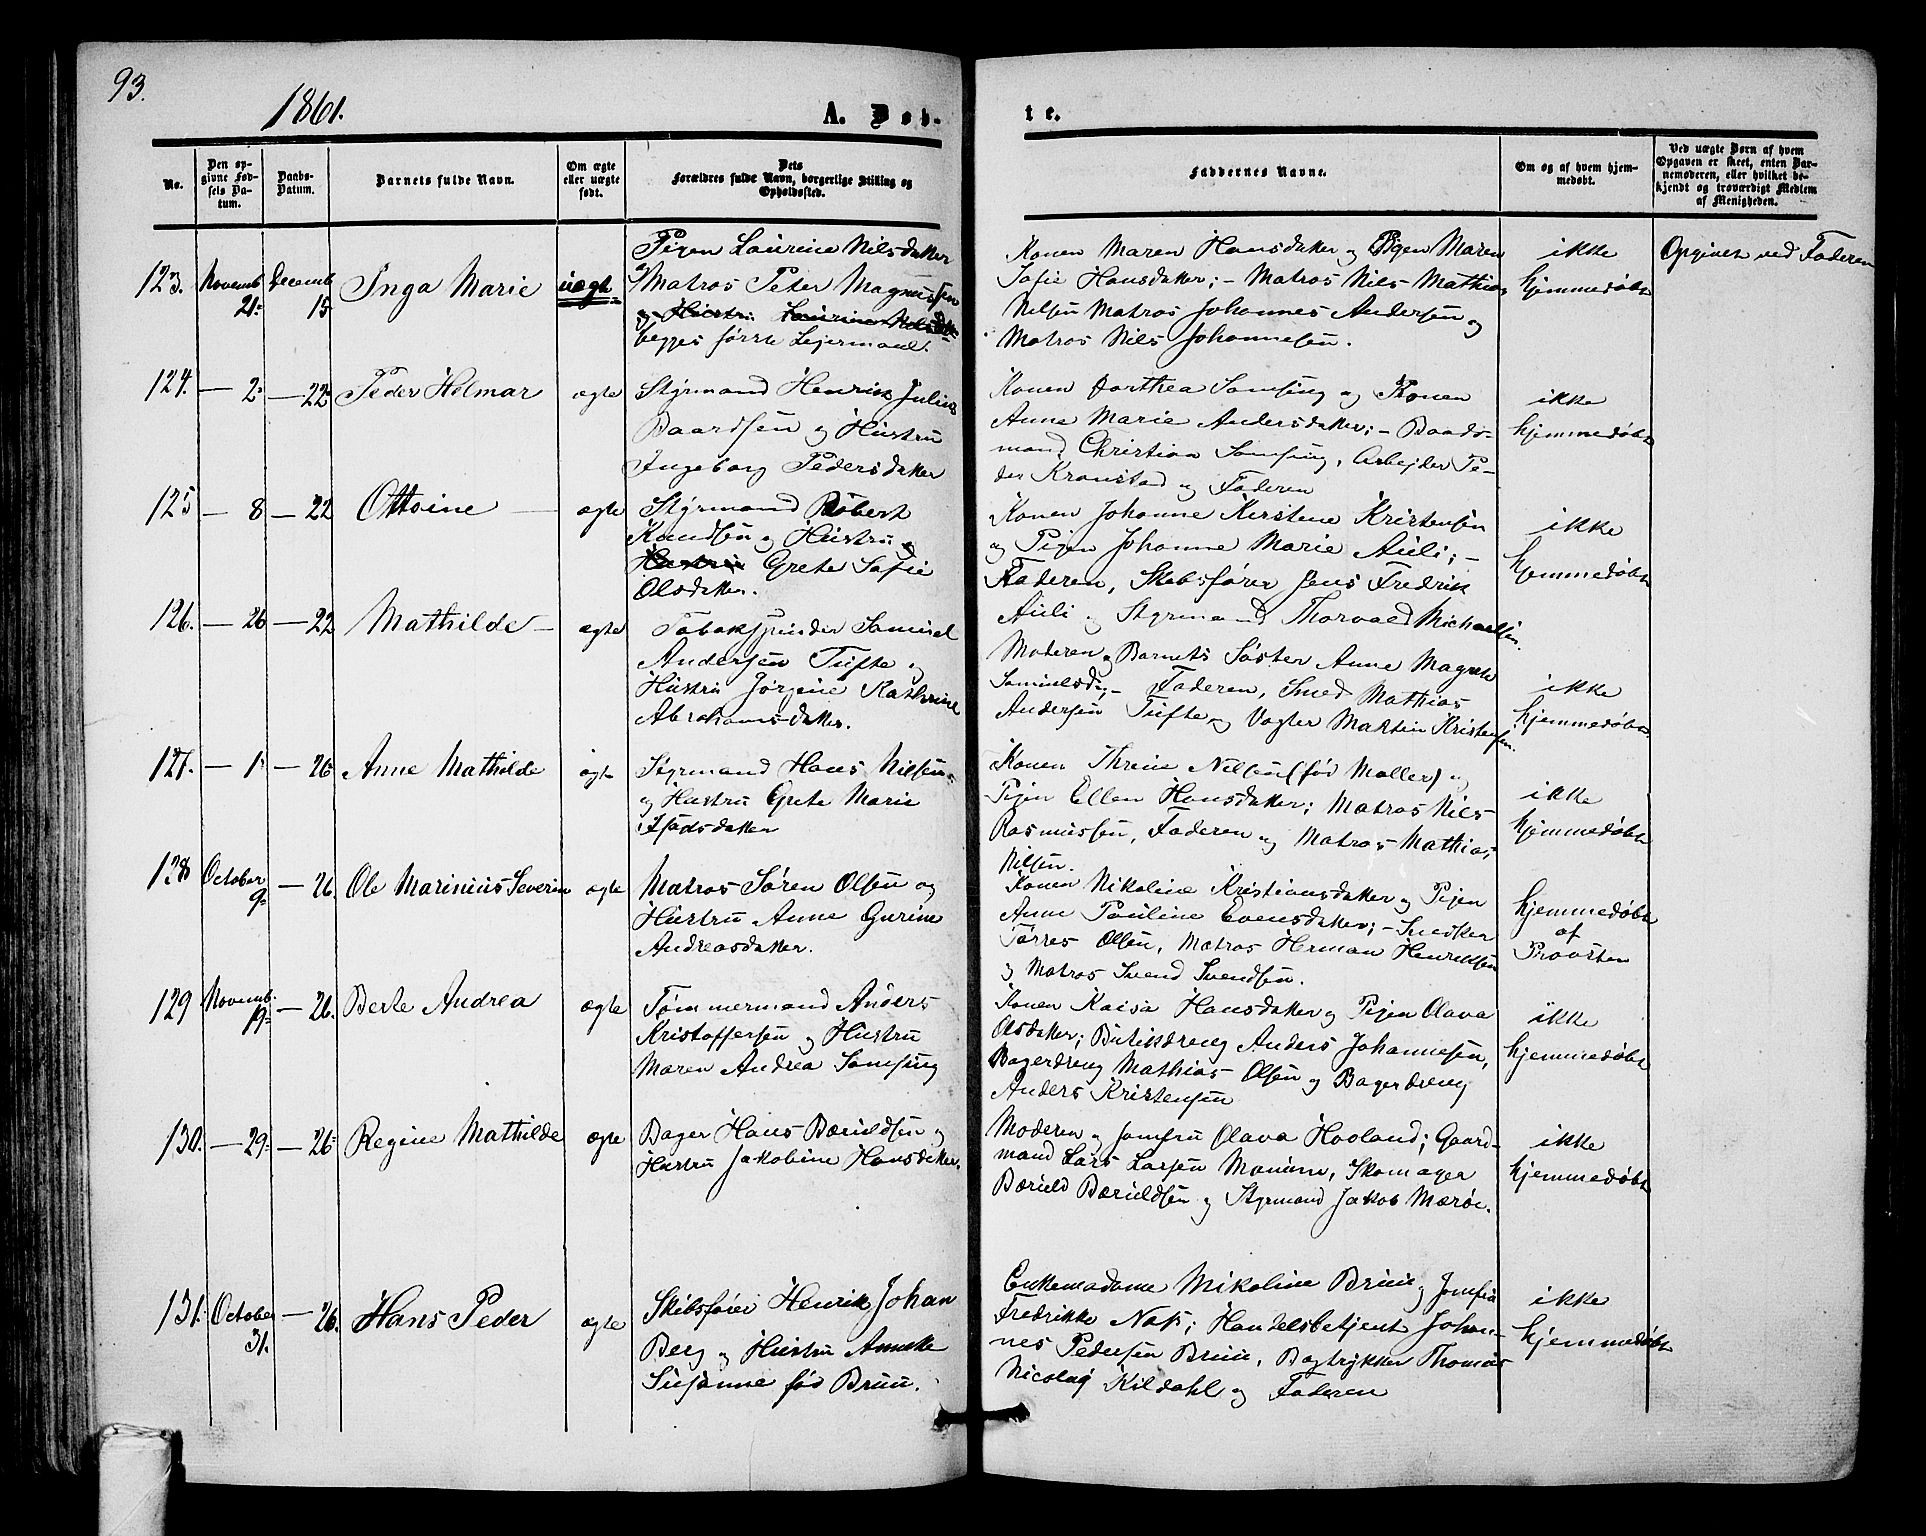 93.
1861.
A. Døb-
te.
No.
Den op-
givne Fød-
sels Da-
tum.
Daabs-
Datum.
Barnets fulde Navn.
Om ægte
eller uægte
født.
Dets
Forældres fulde Navn, borgerlige Stilling og
Opholdssted.
Faddernes Navne.
Om og af hvem hjem-
medøbt.
Ved uægte Børn af hvem
Opgaven er skeet, enten Bar-
nemoderen, eller hvilket be-
kjendt og troværdigt Medlem
af Menigheden.
123. Novemb 21. Decemb 15. Inga Marie uægte
Pigen Laurine Nilsdatter
og Matros Peter Magnussen
og Hustru Laurine Nilsdatter
begges første Lejermaal.
Konen Maren Hansdatter og Pigen Maren
Sofie Hansdatter; - Matros Nils Mathias
Nilsen Matros Johannes Andersen og
Matros Nils Johannesen.
ikke
hjemmedøbt
Opgivet ved Faderen
124. — 2. — 22. Peder Helmar ægte
Styrmand Henrik Julius
Baardsen og Hustru
Ingeborg Pedersdatter
Konen Dorthea Samsing og Konen
Anne Marie Andersdatter; - Baads-
mand Christian Samsing, Arbejder Pe-
der Kronstad og Faderen
ikke
hjemmedøbt
125 — 8 — 22 Ottoine — ægte
Styrmand Robert
Knudsen og Hustru
Hustru Grete Sofie
Olsdatter.
Konen Johanne Kerstene Kristensen
og Pigen Johanne Marie Auli; -
Faderen, Skibsfører Jens Fredrik
Auli og Styrmand Thorvald Michaelsen.
ikke
hjemmedøbt
126. — 26 — 22 Mathilde — ægte
Tobakspinder Samuel
Andersen Tufte og
Hustru Jørgine Kathrine
Abrahamsdatter.
Moderen og Barnets Søster Anne Magrete
Samuelsd; - Faderen, Smed Mathias
Andersen Tufte og Vagter Martin Kristensen.
ikke
hjemmedøbt
127. — 1. — 26 Anne Mathilde ægte
Styrmand Hans Nilsen
og Hustru Grete Marie
Isaksdatter
Konen Thrine Nilsen (fød Møller) og
Pigen Ellen Hansdatter; Matros Nils
Rasmussen, Faderen og Matros Mathias
Nilsen.
ikke
hjemmedøbt
128 October 9. — 26. Ole Marinius Severin ægte
Matros Søren Olsen og
Hustru Anne Gurine
Andreasdatter.
Konen Nikoline Kristiansdatter og Pigen
Anne Pauline Evensdatter; - Snedker
Tørres Olsen, Matros Herman Henriksen
og Matros Svend Svendsen.
hjemmedøbt
af
Provsten
129 Novemb. 19. — 26. Berte Andrea ægte
Tømmermand Anders
Kristoffersen og Hustru
Maren Andrea Samsing
Konen Kaisa Hansdatter og Pigen Olava
Olsdatter; Butikdreng Anders Johannesen,
Bagerdreng Mathias Olsen og Bagerdreng
Anders Kristensen
ikke
hjemmedøbt
130. — 29. — 26. Regine Mathilde ægte
Bager Hans Bæruldsen og
Hustru Jakobine Hansdatter.
Moderen og Jomfru Olava Hovland; Gaard-
mand Lars Larsen Manum, Skomager
Bæruld Bæruldsen og Styrmand Jakob Mærøe.
ikke
hjemmedøbt
131. October 31. — 26. Hans Peder ægte
Skibsfører Henrik Johan
Berg og Hustru Anneke
Susanne fød Bruu.
Enkemadame Nikoline Bruu og Jomfru
Fredrikke Nass; Handelsbetjent Johan-
nes Pedersen Bruu, Bogtrykker Thomas
Nicolay Kildahl og Faderen
ikke
hjemmedøbt